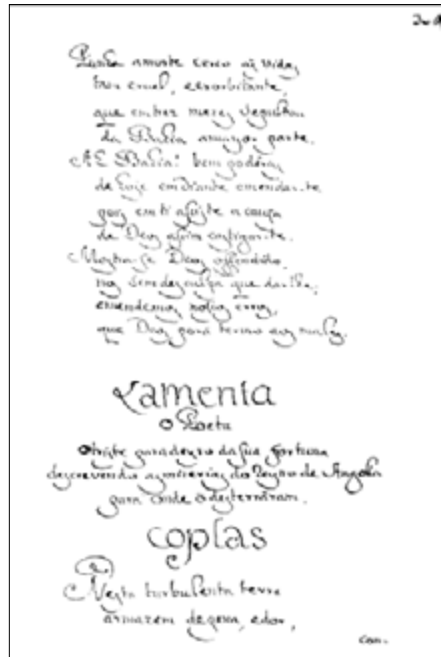 Quiz a morte cerco às vidas
tam cruel, e exorbitante,
que em tres mezes sepultou
da Bahia a mayor parte.
Ah Bahia! bem poderas
de hoje em diante emendar-te
pois em ti assiste a causa
de Deos assim castigar-te.
Mostra-se Deos offendido,
nos sem desculpa que dar-lhe,
emendemos nossos erros,
que Deos porá termo aos males.
Lamenta
o Poeta
O triste paradeyro da sua fortuna
descrevendo as miserias do Reyno de Angola
para onde o desterraram.
Coplas
Nesta turbulenta terra
armazem de pena, e dor,